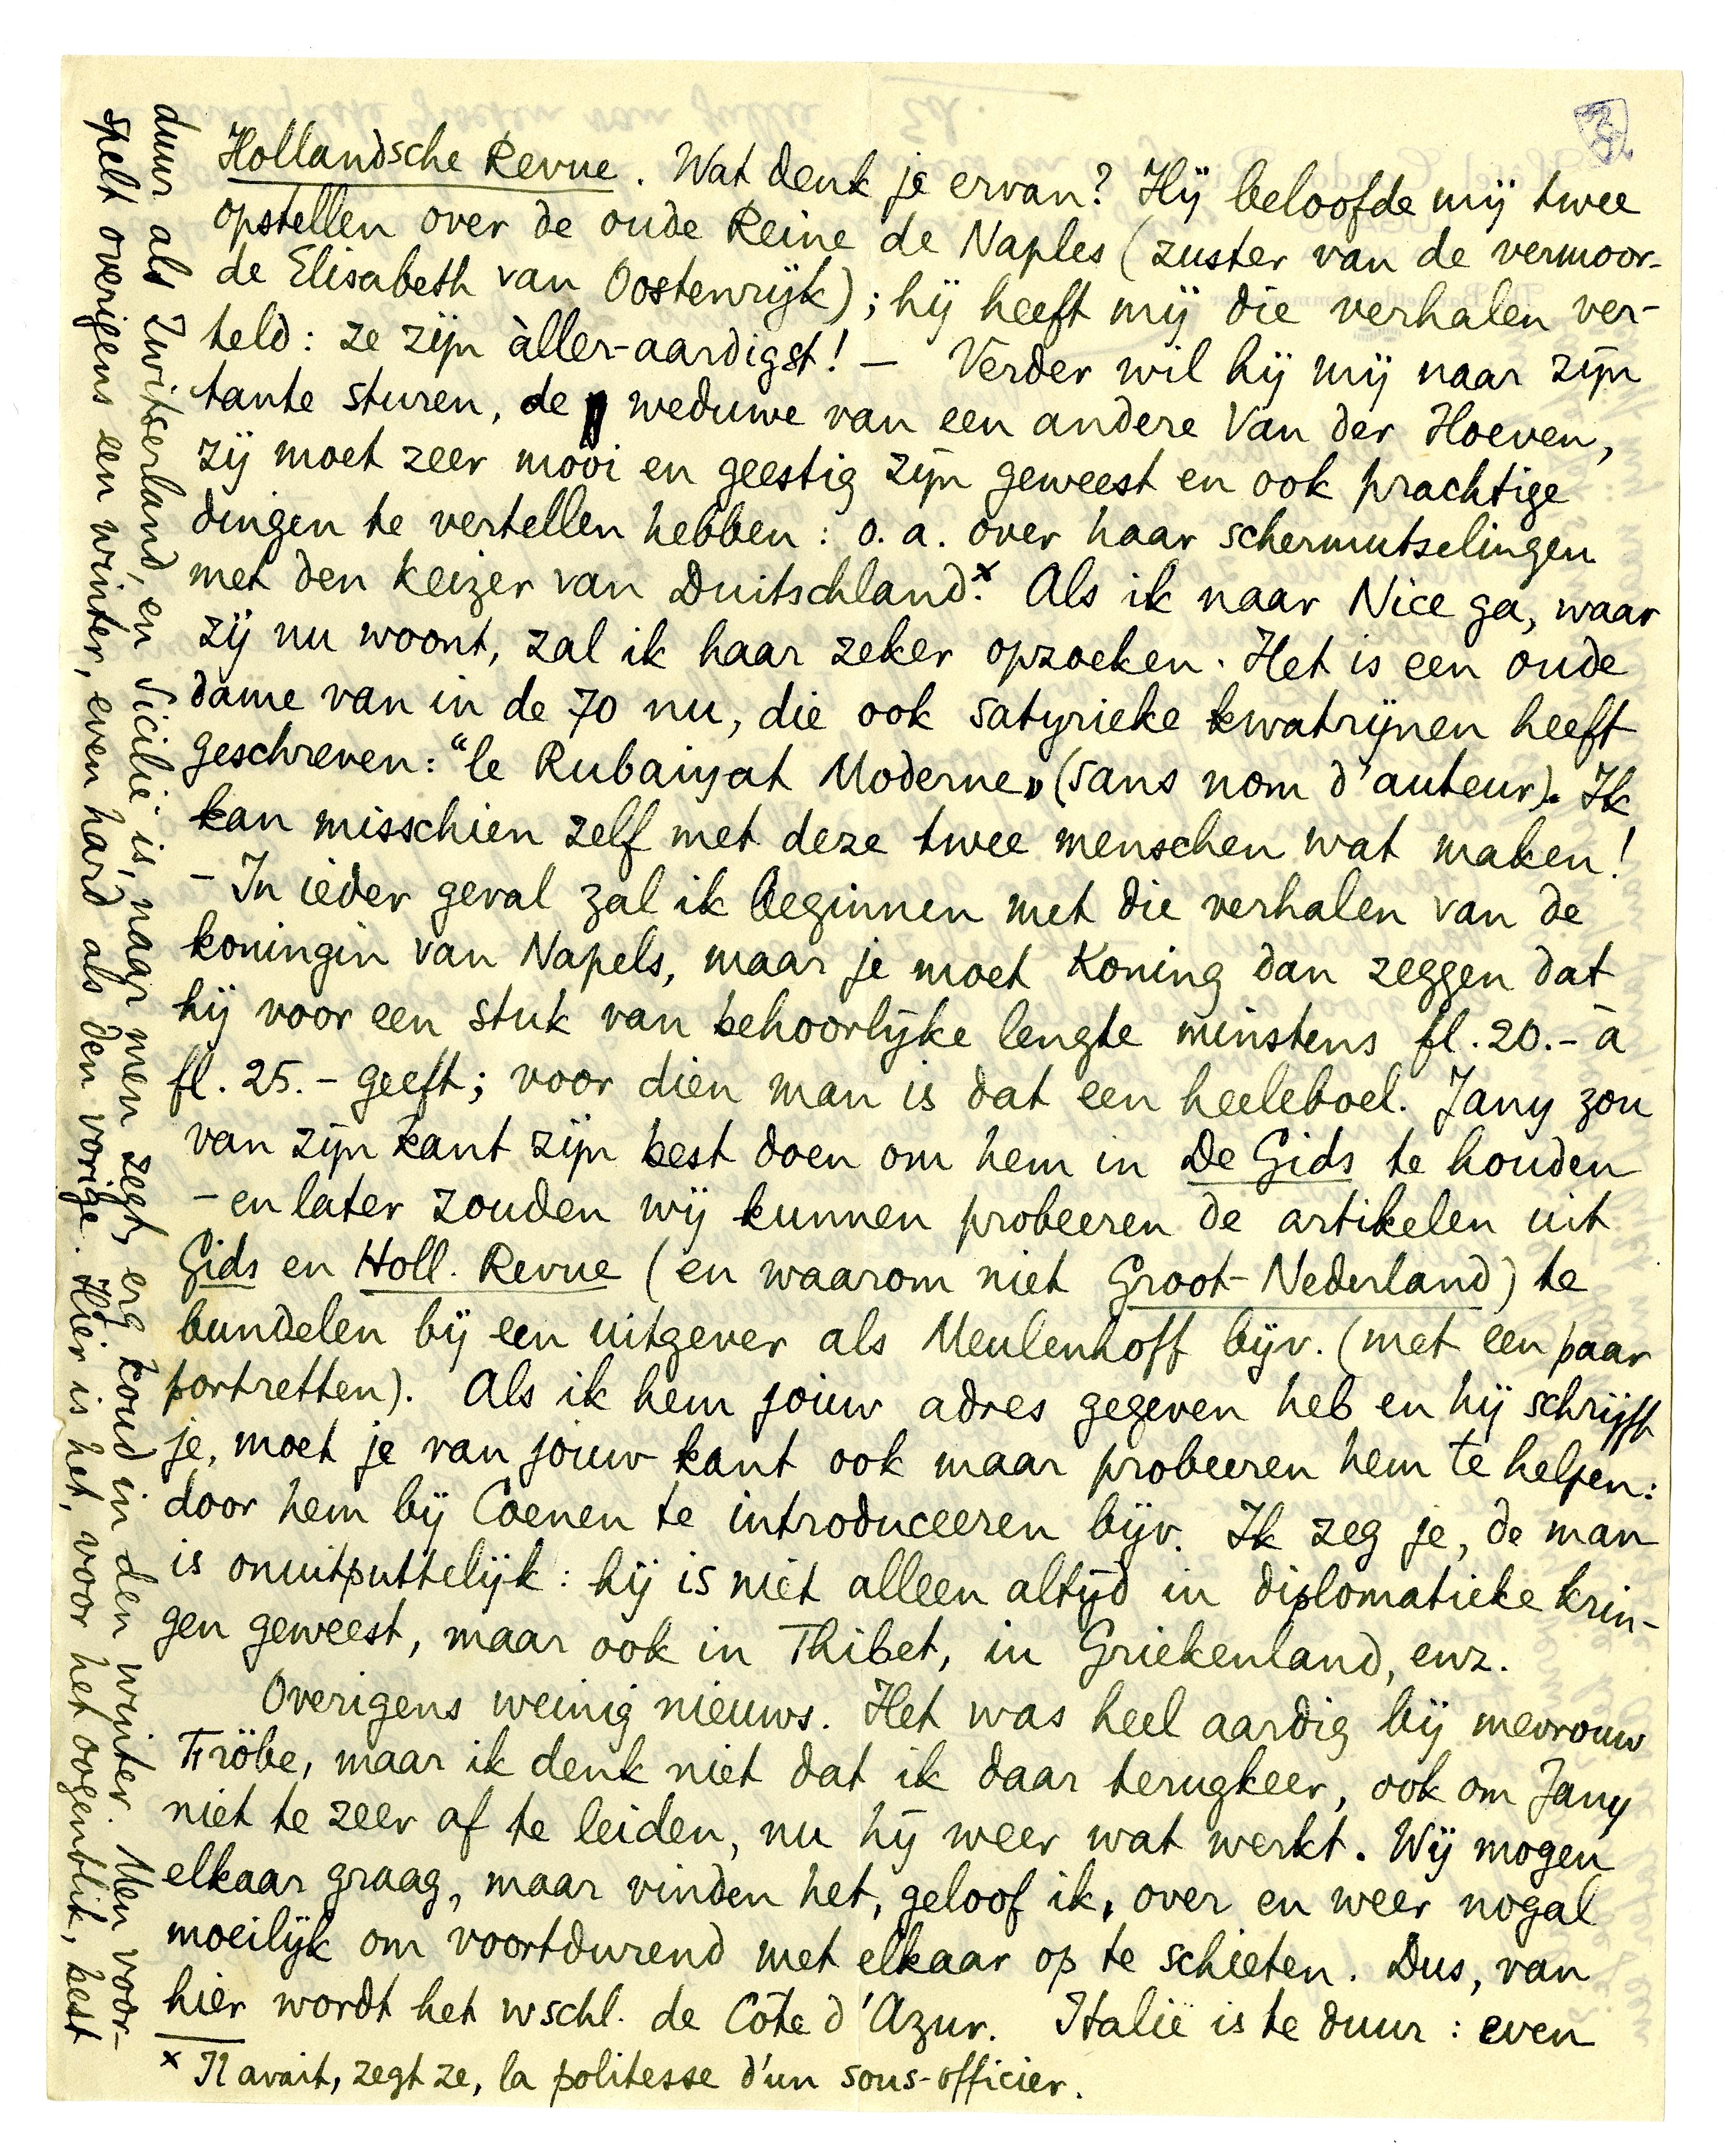 Hollandsche Revue. Wat denk je ervan? Hij beloofde mij twee
opstellen over de oude Reine de Naples (zuster van de vermoor-
de Elisabeth van Oostenrijk); hij heeft mij die verhalen ver-
teld: ze zijn àller-aardigst! — Verder wil hij mij naar zijn
tante sturen, de weduwe van een andere Van der Hoeven,
zij moet zeer mooi en geestig zijn geweest en ook prachtige
dingen te vertellen hebben: o.a. over haar schermutselingen
met den keizer van Duitschland.x Als ik naar Nice ga, waar
zij nu woont, zal ik haar zeker opzoeken. Het is een oude
dame van in de 70 nu, die ook satyrieke kwatrijnen heeft
geschreven: “le Rubaiyat Moderne” (sans nom d'auteur). Ik
kan misschien zelf met deze twee menschen wat maken!
- In ieder geval zal ik beginnen met die verhalen van de
koningin van Napels, maar je moet Koning dan zeggen dat
hij voor een stuk van behoorlijke lengte minstens fl. 20.- à
fl. 25.- geeft; voor dien man is dat een heeleboel. Jany zou
van zijn kant zijn best doen om hem in De Gids te houden
- en later zouden wij kunnen probeeren de artikelen uit
Gids en Holl. Revue (en waarom niet Groot-Nederland) te
bundelen bij een uitgever als Meulenhoff bijv. (met een paar
portretten). Als ik hem jouw adres gegeven heb en hij schrijft
je, moet je van jouw kant ook maar probeeren hem te helpen:
door hem bij Coenen te introduceeren bijv. Ik zeg je, de man
is onuitputtelijk: hij is niet alleen altijd in diplomatieke krin-
gen geweest, maar ook in Thibet, in Griekenland, enz.
Overigens weinig nieuws. Het was heel aardig bij mevrouw
Fröbe, maar ik denk niet dat ik daar terugkeer, ook om Jany
niet te zeer af te leiden, nu hij weer wat werkt. Wij mogen
elkaar graag, maar vinden het, geloof ik, over en weer nogal
moeilijk om voortdurend met elkaar op te schieten. Dus, van
hier wordt het wschl. de Côte d'Azur. Italië is te duur: even
x Il avait, zegt ze, la politesse d'un sous-officier.
duur als Zwitserland, en Sicilië is, naar men zegt, erg koud in den winter. Men voor-
spelt overigens een winter, even hard als den vorige. Hier is het, voor het oogenblik, best